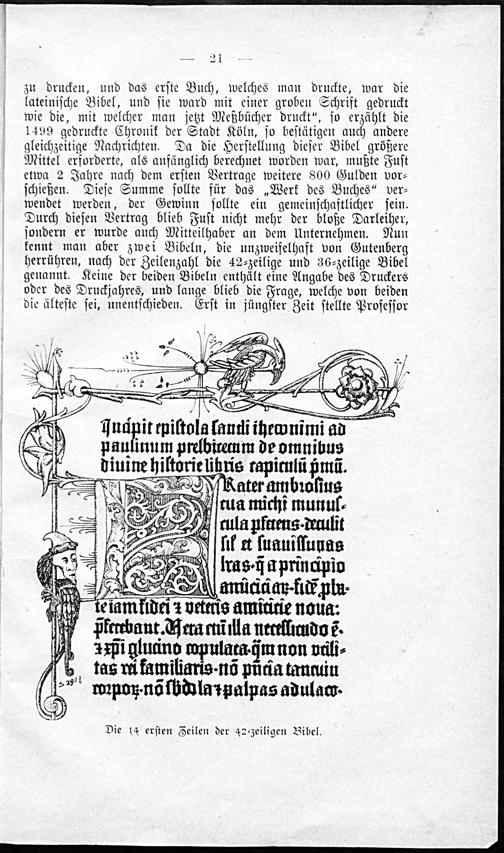 — 21 —
zu drucken, und das erste Buch, welches man druckte, war die
lateinische Bibel, und sie ward mit einer groben Schrift gedruckt
wie die, mit welcher man jetzt Meßbücher druckt", so erzählt die
1499 gedruckte Chronik der Stadt Köln, so bestätigen auch andere
gleichzeitige Nachrichten. Da die Herstellung dieser Bibel größere
Mittel erforderte, als anfänglich berechnet worden war, mußte Fust
etwa 2 Jahre nach dem ersten Vertrage weitere 800 Gulden vor-
schießen. Diese Summe sollte für das „Werk des Buches" ver-
wendet werden, der Gewinn sollte ein gemeinschaftlicher sein.
Durch diesen Vertrag blieb Fust nicht mehr der bloße Darleiher,
sondern er wurde auch Mitteilhaber an dem Unternehmen. Nun
kennt man aber zwei Bibeln, die unzweifelhaft von Gutenberg
herrühren, nach der Zeilenzahl die 42-zeilige und 36-zeilige Bibel
genannt. Keine der beiden Bibeln enthält eine Angabe des Druckers
oder des Druckjahres, und lange blieb die Frage, welche von beiden
die älteste sei, unentschieden. Erst in jüngster Zeit stellte Professor
Incipit epistola sancti iheronimi ad
paulinum presbiterum de omnibus
divine historie libris capitulū pmū.
Frater ambrosius
tua michi munus-
cula pferens·detulit
sil et suavissimas
lras·q̄ a principio
amiciciar·fidē
te iam fidei ⁊ veteris amicicie nova:
pferebant. Vera enī illa necessitudo ē·
⁊ xpi glutino copulata·qm non utili-
tas rei familiaris·nō pñcia tantum
corpor·nō sbdola ⁊ palpas adulaco·
Die 14 ersten Zeilen der 42-zeiligen Bibel.